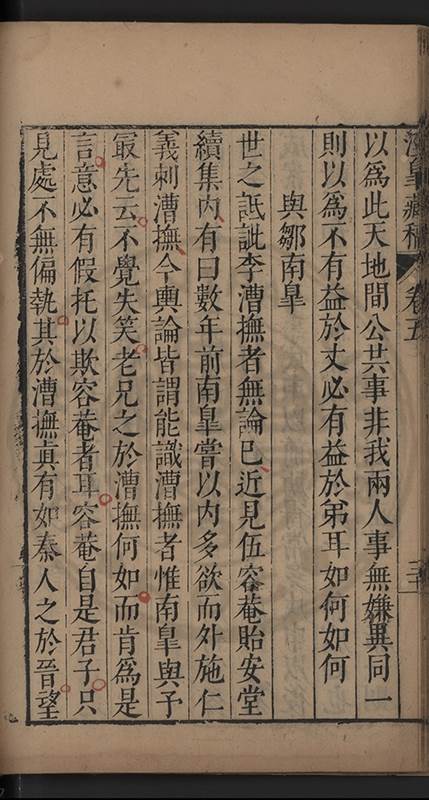 涇臯藏稿 卷五 三
以爲此天地間公共事非我兩人事無嫌異同一
則以爲不有益於丈必有益於弟耳如何如何
與鄒南臯
世之詆訾李漕撫者無論已近見伍容菴貽安堂
續集內有曰數年前南臯嘗以內多欲而外施仁
義刺漕撫今輿論皆謂能識漕撫者惟南臯與予
最先云不覺失笑老兄之於漕撫何如而肯爲是
言意必有假托以欺容菴者耳容菴自是君子只
見處不無偏執其於漕撫眞有如秦人之於晉望